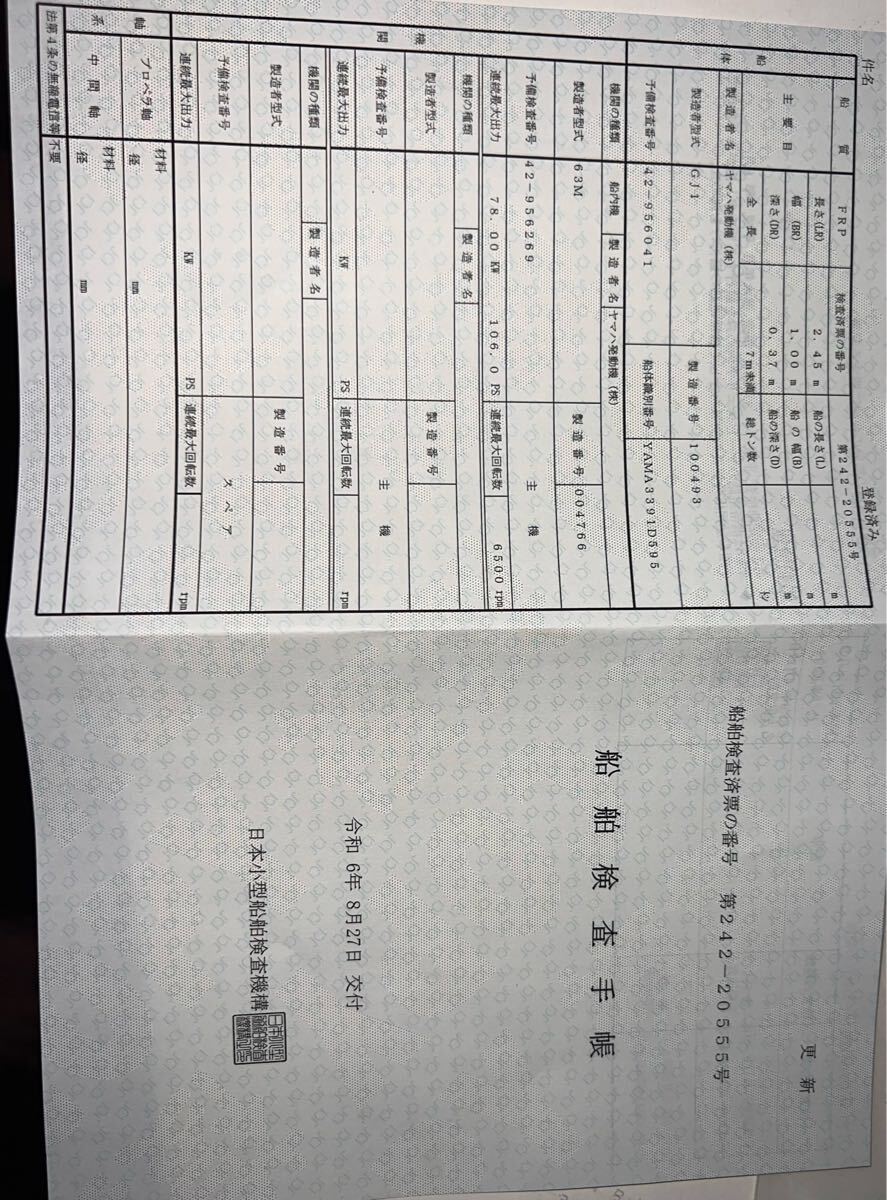 更 新
船舶検査済票の番号 第242-20555号
船 舶 検 査 手 帳
令和 6年 8月27日 交付
日本小型船舶検査機構
件名
登録済み
船 質 FRP 検査済票の番号 第242-20555号
船 体
主 要 目
長さ(LR) 2.45 m 船の長さ(L) m
幅 (BR) 1.00 m 船 の 幅(B) m
深さ(DR) 0.37 m 船の深さ(D) m
全 長 7m未満 総トン数 トン
製 造 者 名 ヤマハ発動機(株)
製造者型式 GJ1 製 造 番 号 100493
予備検査番号 42-956041 船体識別番号 YAMA3391D595
機 関
機関の種類 船内機 製 造 者 名 ヤマハ発動機(株)
製造者型式 63M 製 造 番 号 004766
予備検査番号 42-956269 主 機
連続最大出力 78.00 KW 106.0 PS 連続最大回転数 6500 rpm
機関の種類 製 造 者 名
製造者型式 製 造 番 号
予備検査番号 主 機
連続最大出力 KW PS 連続最大回転数 rpm
機関の種類 製 造 者 名
製造者型式 製 造 番 号
予備検査番号 スペア
連続最大出力 KW PS 連続最大回転数 rpm
軸 系
プロペラ軸 材料
径 mm
中 間 軸 材料
径 mm
法第4条の無線電信等 不要